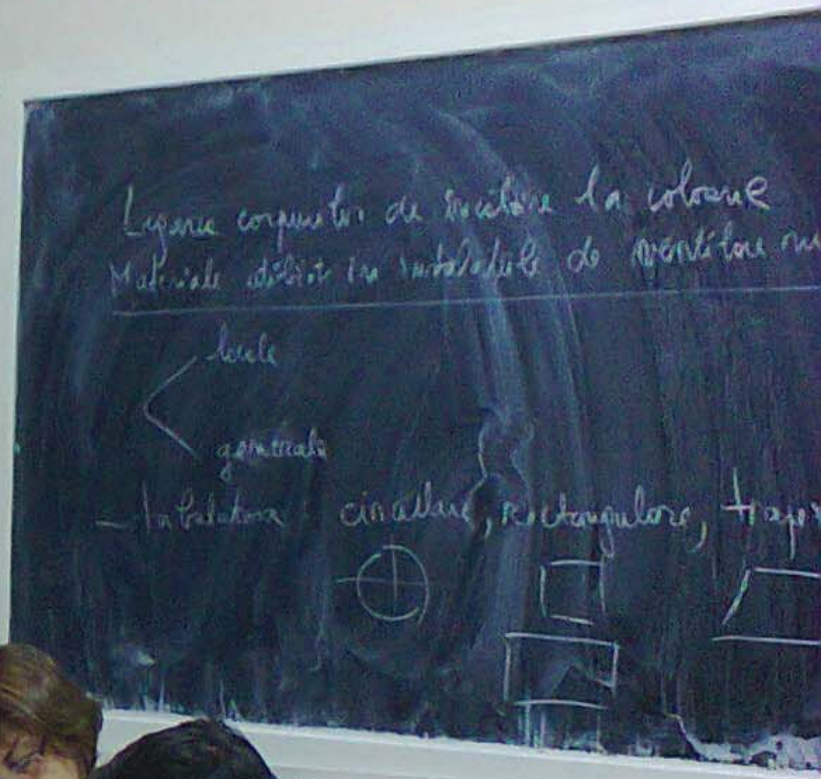 Legarea corpurilor de încălzire la coloane
Materiale utilizate în instalațiile de ventilare
locale
generale
— tubulatura circulare, rectangulare,